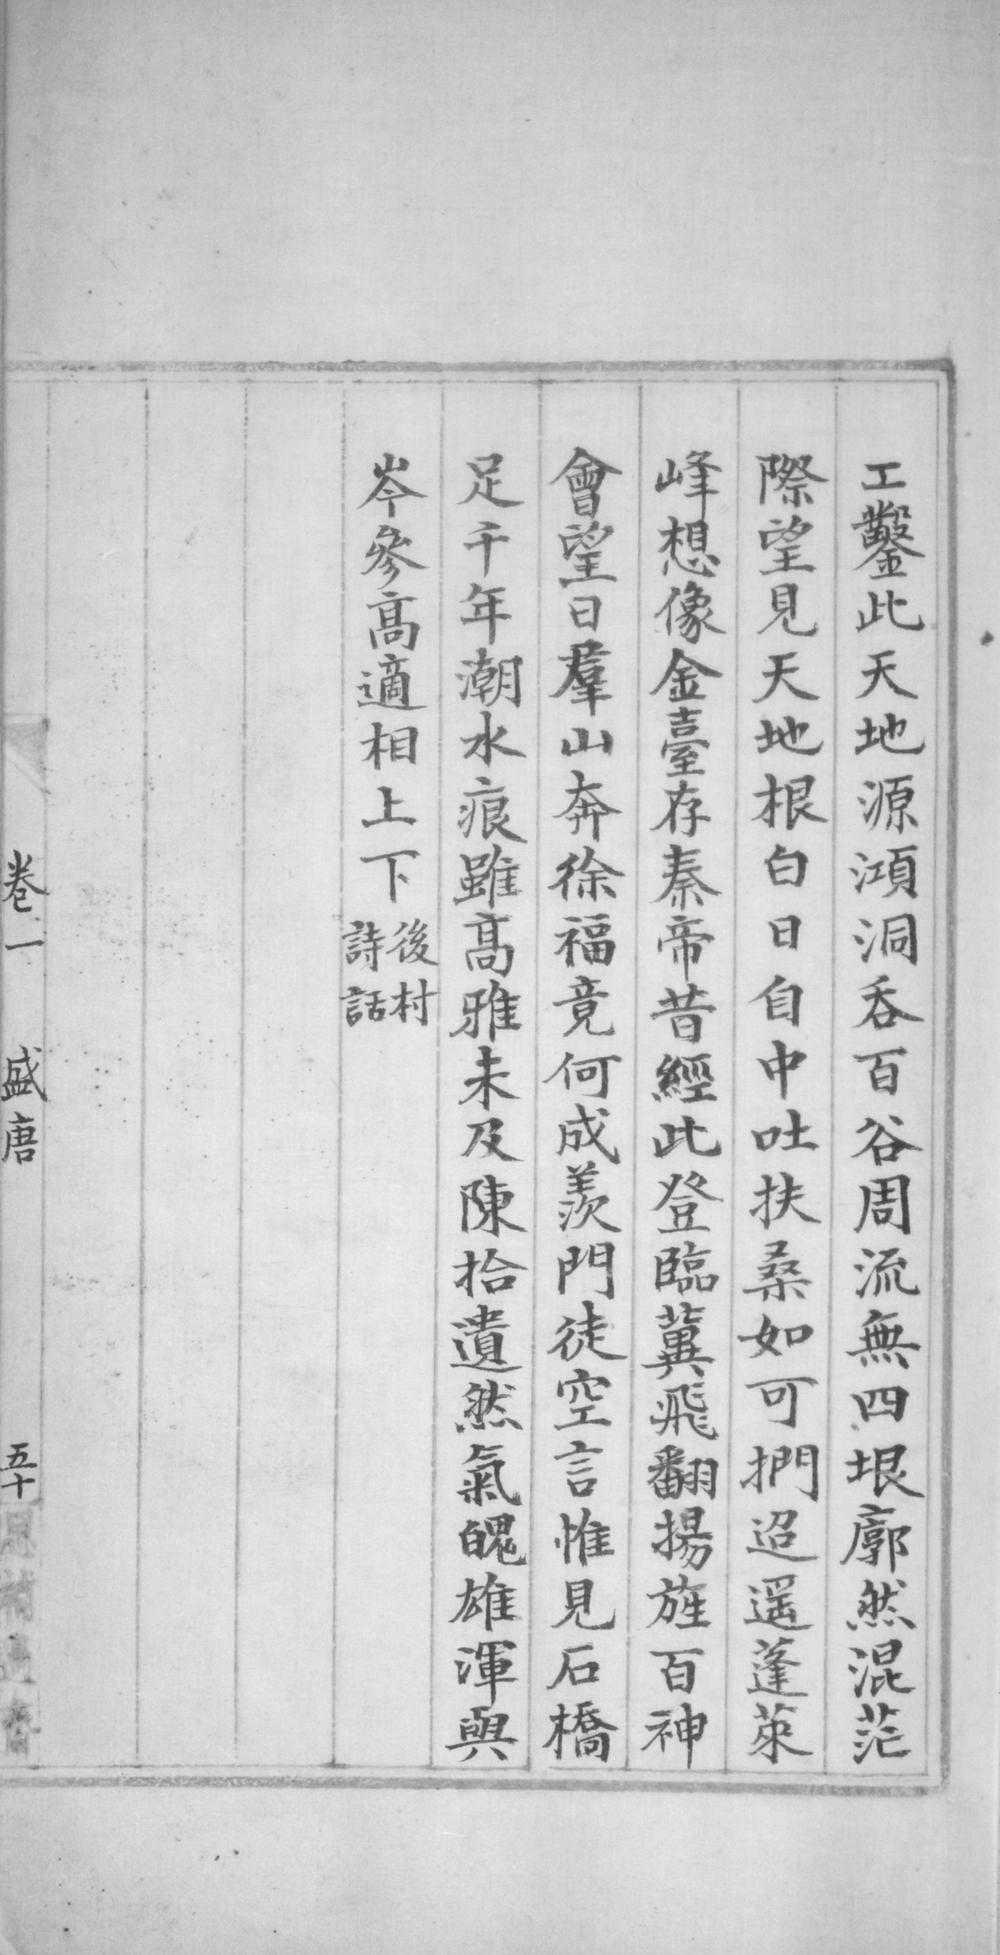 工鑿此天地源澒洞呑百谷周流無四垠廓然混茫
際望見天地根白日自中吐扶桑如可捫迢遥蓬萊
峰想像金臺存秦帝昔經此登臨冀飛翻揚旌百神
會望日羣山奔徐福竟何成羨門徒空言惟見石橋
足千年潮水痕雖髙雅未及陳拾遺然氣魄雄渾與
岑參髙適相上下後村詩話
卷一 盛唐 五十